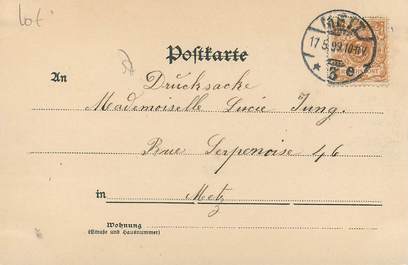 Lot
METZ
17.5.99.10-11V.
* 3 e *
Postkarte
An Drucksache
Mademoiselle Lucie Jung.
Rue Serpenoise 46
in Metz
Wohnung
(Straße und Hausnummer)